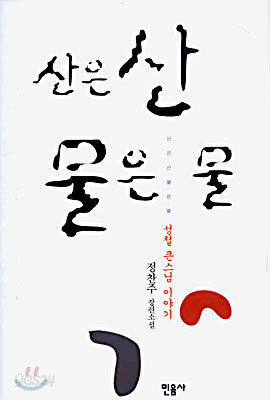 산은 산
물은 물
산은산물은물
성철 큰스님 이야기
정찬주 장편소설
민음사
yes24